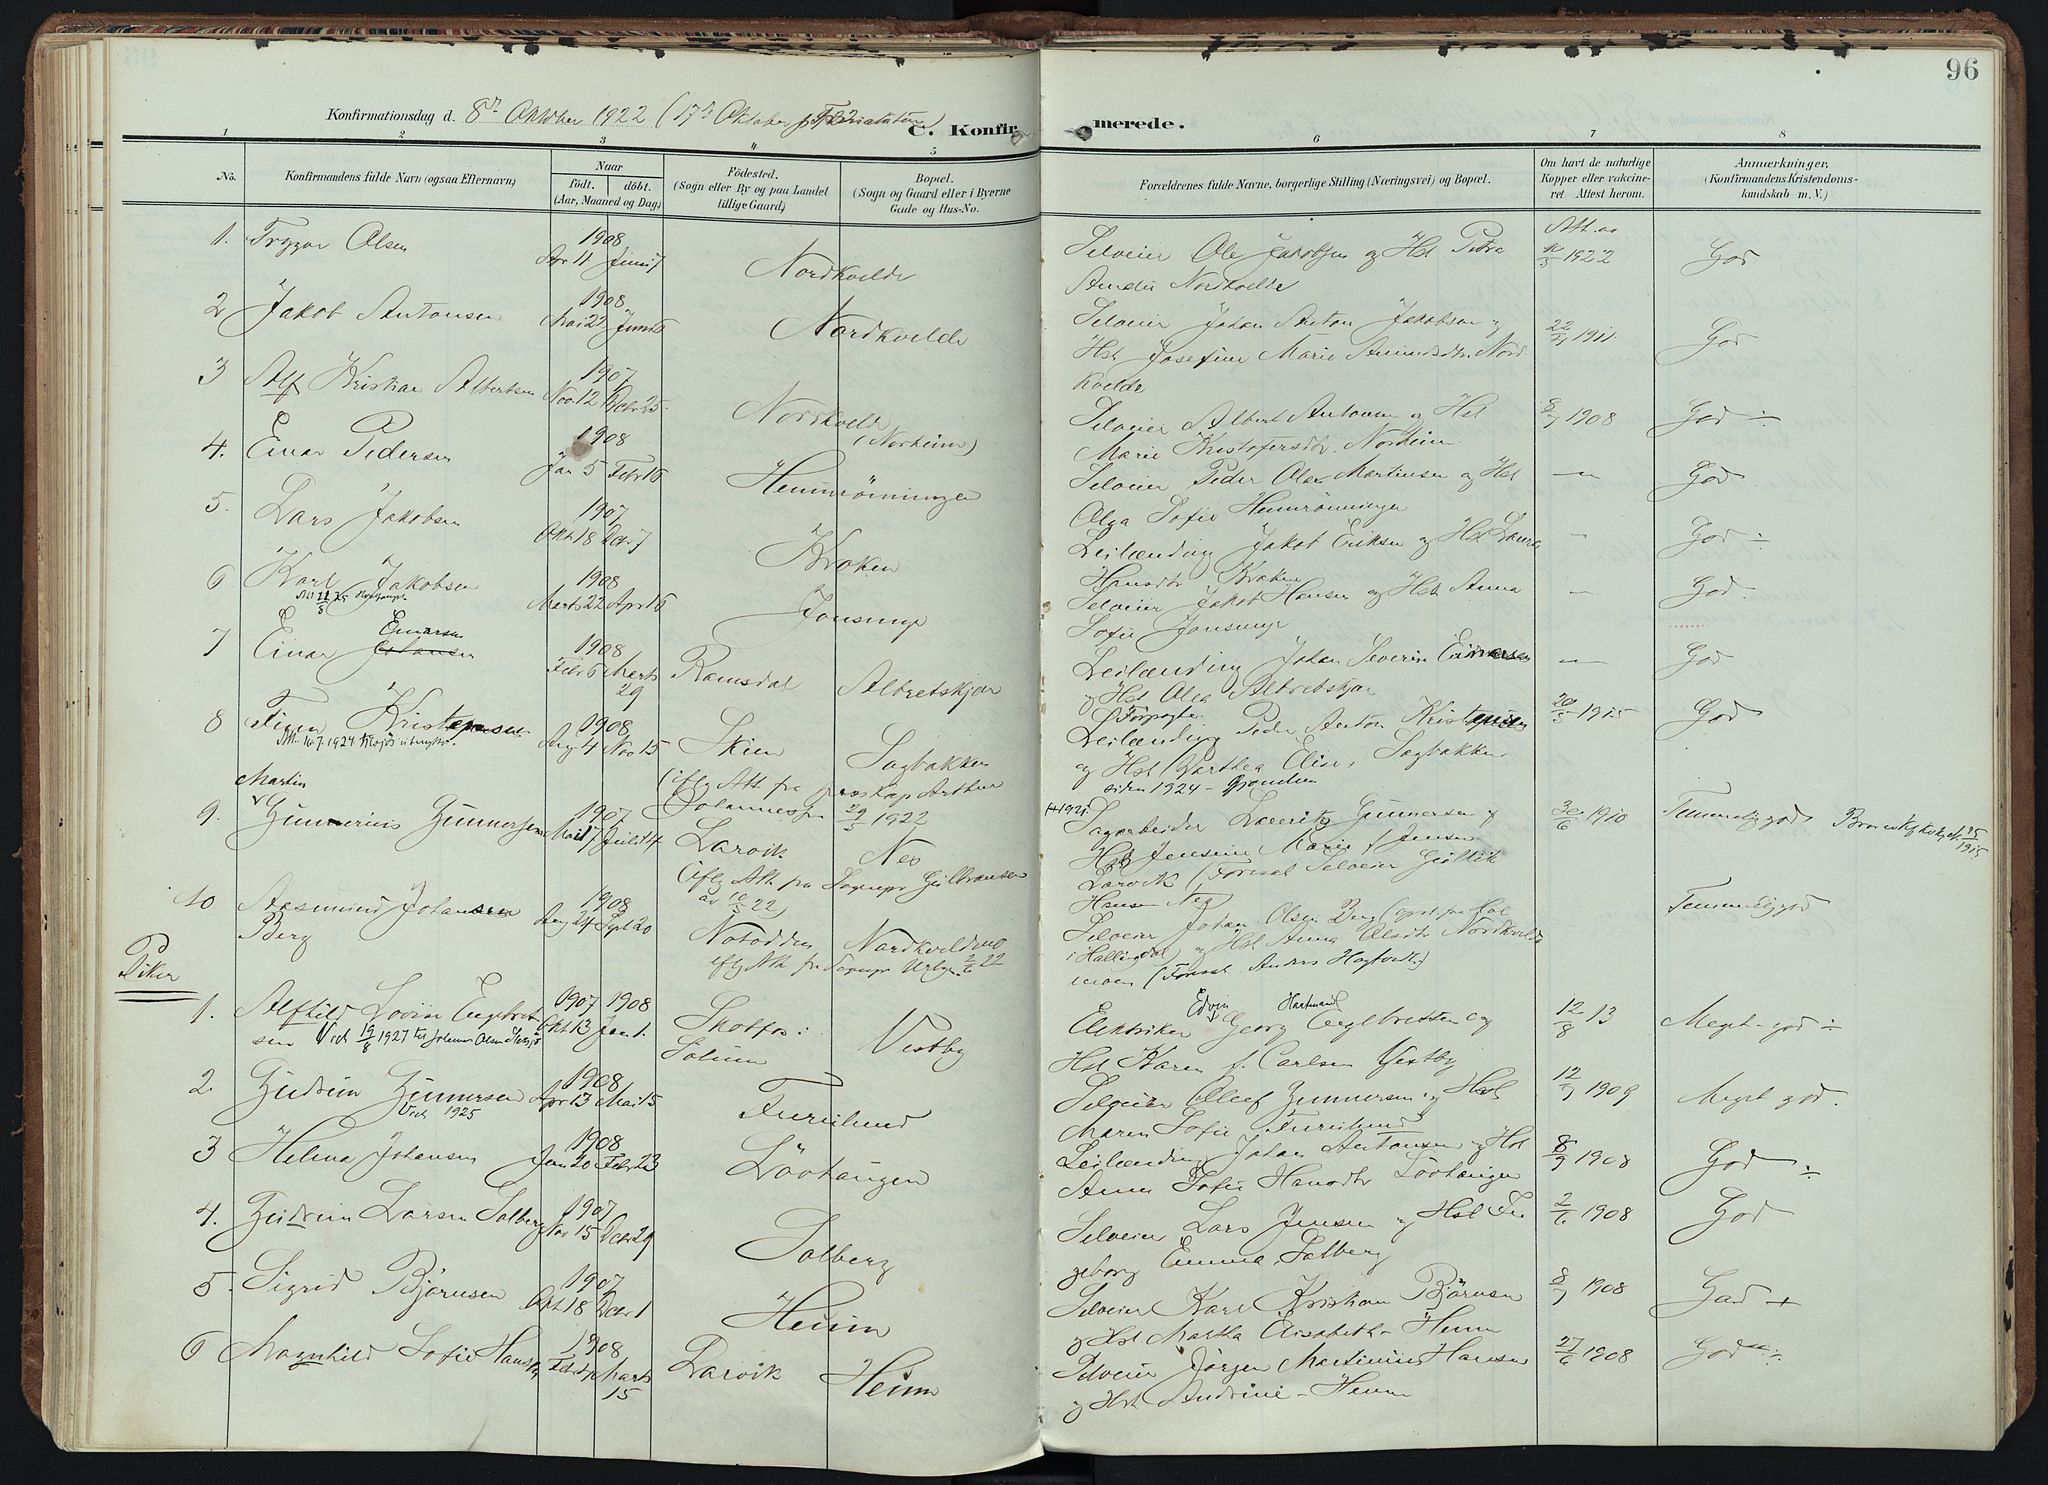 96
Konfirmationsdag d. 8de Oktober 1922 (17de Oktober
C. Konfirmerede.
1 2 3 4 5 6 7 8
No.
Konfirmandens fulde Navn (ogsaa Efternavn)
Naar
födt. döbt.
(Aar, Maaned og Dag)
Födested.
(Sogn eller By og paa Landet
tillige Gaard)
Bopæl.
(Sogn og Gaard eller i Byerne
Gade og Hus-No.
Forældrenes fulde Navne, borgerlige Stilling (Næringsvei) og Bopæl.
Om havt de naturlige
Kopper eller vakcine-
ret Attest herom.
Anmærkninger,
(Konfirmandens Kristendoms-
kundskab m. V.)
1. Trygve Olsen 1908 Apr 11 Juni 7 Nordkvelde
Selveier Ole Jakobsen og Hst Petra
Nordkvelde
Att. av 5 1922 God
2 Jakob Antonsen 1908 Mai 22 Juni Nordkvelde
Selveier Johan Anton Jakobsen og
Hst Josefine Marie Amundsdtr. Nord
kvelde
22 1911 God
3 Alf Kristian Albertsen 1907 Nov 12 Dcbr 25 Nordkvelde
(Norheim)
Selveier Albert Antonsen og Hst
Marie Kristofersdtr. Norheim
8/9 1908 God ÷
4. Einar Pedersen 1908 Jan 5 Febr 16 Heimrönningen
Selveier Peder Olaus Martinsen og Hst
Olga Sofie Heimrönningen
— God
5. Lars Jakobsen 1907 Okt 18 Dcbr 7 Kroken
Leilænding Jakob Eriksen og Hst Laura
Hansdtr Kroken
— God ÷
6 Karl Jakobsen 1908 Marts 22 Apr 16 Jonsmyr
Selveier Jakob Hansen og Hst Anna
Sofie Jonsmyr
— God
7 Einar Einarsen 1908 Febr 6 Marts
29
Ramsdal Albretskjær
Leilænding Johan Severin Einarsen
og Hst Olga Albretskjær
— God
8 Finn Kristensen 1908 Aug 4 Nov 15 Skien Sagbakken
Att. 10.7.1924 utmeldt.
(iflg Att fra Arthur
Johannessen 29/5 1922
Forpagter
Leilænding Peder Anton Kristensen
og Hst Marthea Elise, Sagbakken
siden 1924 –
20/5 1915 God
Martin
9. Gunnerius Gunnersen 1907 Mai 17 Juli 14 Larvik Nes
(iflg Att fra Sognepr Gulbransen
av 10/5 22)
(+1921)
Sagarbeider Lauritz Gunnersen og
Hst Jensine Marie f Jensen
Larvik (Forsat Selveier
Hansen Nes)
30/6 1910 Temmelig god
10 Aasmund Johansen 1908 Aug 24 Sept 20
Berg
Notodden Nordkveldmo
iflg Att fra Sognepr 2/6 22
Selveier Johan Olsen Berg
i Hallingdal og Hst Anna Olsdtr Nordkveld
moen (Forsat Anders
Temmelig god
Piker
1. Alfhild Lovise Engebret 1907 1908 Skotfos i Vestby
sen Okt 13 Jan 1. Solum
Vid 19/8 1927 til Johannes Olsen
Edvin Hartmann
Elektriker Georg Engebretsen og
Hst Karen f. Carlsen Vestby
12/8 13 Meget god ÷
2. Gudrun Gunnersen 1908 Apr 13 Mai 15 Furulund
Vid 1925
Selveier Olaf Gunnersen og Hst
Maren Sofie Furulund
12/9 1909 Meget god.
3 Helena Johansen 1908 Jan 20 Febr 23 Lövhaugen
Leilænding Johan Antonsen og Hst
Anna Sofie Hansdtr Lövhaugen
8/9 1908 God ÷
4. Gudrun Larsen Solberg 1907 Nov 15 Dcbr 29 Solberg
Selveier Lars Jensen og Hst In
geborg Emma Solberg
2/6 1908 God
5. Sigrid Björnsen 1907 Okt 18 Dcbr 1 Heim
Selveier Karl Kristian Björnsen
og Hst Martha Elisabeth Heim
8/9 1908 God +
6 Magnhild Sofie Hansen 1908 Marts
15
Larvik Heim
Selveier Jörgen Martinius Hansen
og Hst Andrine – Heim
27/6 1908 God ÷